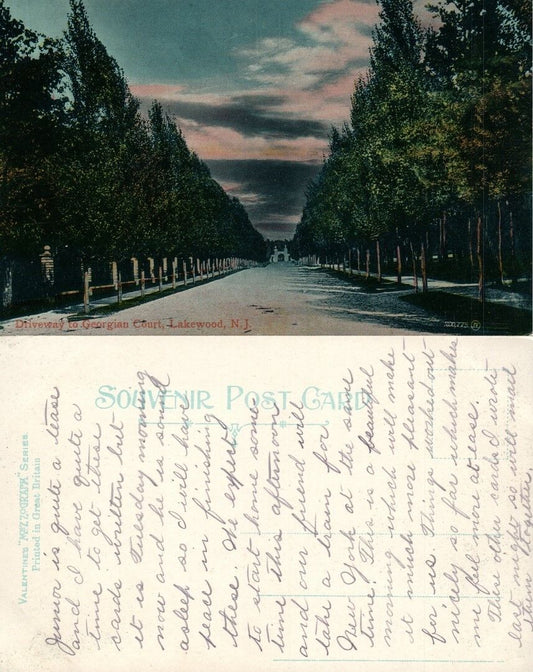 Driveway to Georgian Court, Lakewood, N. J.
SOUVENIR POST CARD
VALENTINE'S "MEZZOGRAPH" SERIES
Printed in Great Britain
Junior is quite a tease
and I have quite a
time to get these
cards written but
it is Tuesday morning
now and he is sound
asleep so I will have
peace in finishing
these. We expect
to start home some
time this afternoon
and our friend will
take a train for
New York at the same
time. This is a beautiful
morning which will make
it much more pleasant
for us. Things worked out
nicely so far and makes
me feel more at ease.
These other cards I wrote
last night so will mail
them together.